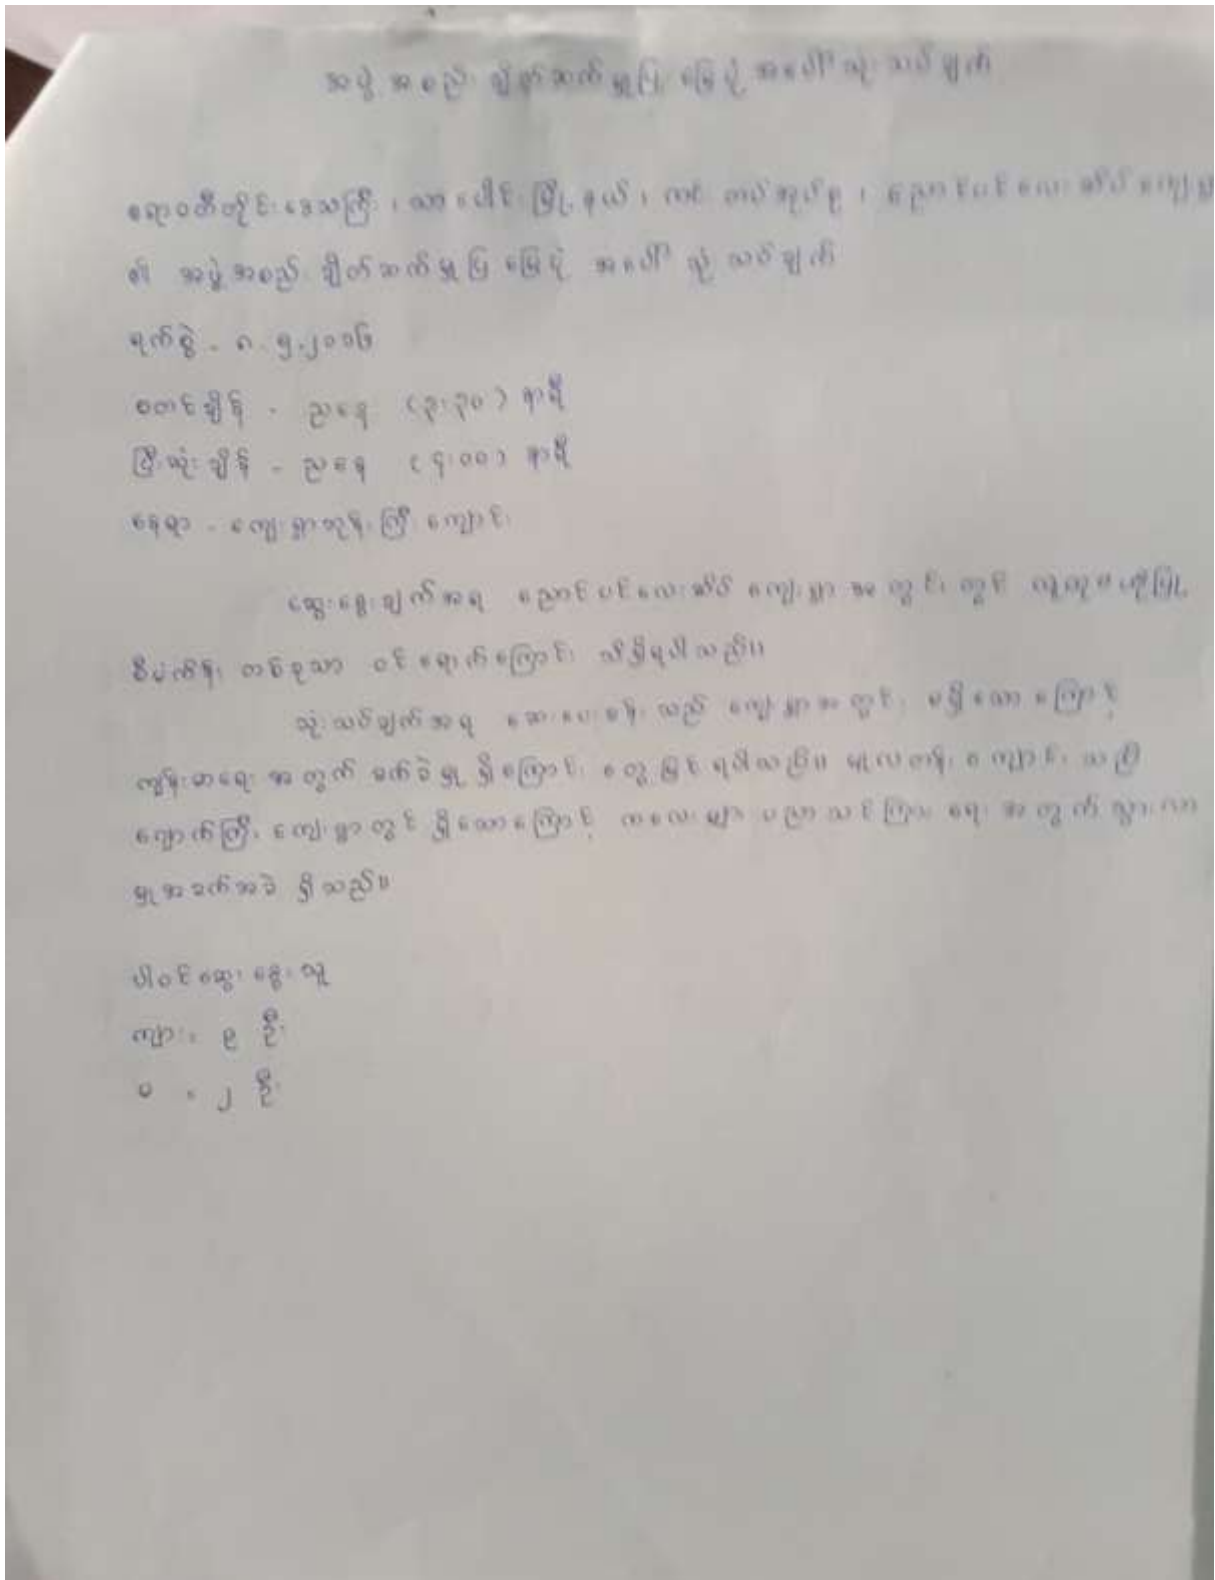 အဖွဲ့အစည်း ချိတ်ဆက်မှုပြ မြေပုံ အပေါ် သုံးသပ်ချက်
ဧရာဝတီတိုင်းဒေသကြီး၊ သာပေါင်းမြို့နယ်၊ ကင်းတပ်အုပ်စု၊ ညောင်ပင်လေးဆိပ် ကျေးရွာ
၏ အဖွဲ့အစည်း ချိတ်ဆက်မှုပြ မြေပုံ အပေါ် သုံးသပ်ချက်
ရက်စွဲ - ၈.၅.၂၀၁၆
စတင်ချိန် - ညနေ (၃:၃၀) နာရီ
ပြီးဆုံးချိန် - ညနေ (၄:၀၀) နာရီ
နေရာ - ကျေးရွာဘုန်းကြီးကျောင်း
ဆွေးနွေးချက်အရ ညောင်ပင်လေးဆိပ် ကျေးရွာအတွင်းတွင်
စီမံကိန်း တစ်ခုသာ ဝင်ရောက်ကြောင်း သိရှိရပါသည်။
သုံးသပ်ချက်အရ ဆေးပေးခန်းသည် ကျေးရွာအတွင်း မရှိသောကြောင့်
ကျန်းမာရေးအတွက် ခက်ခဲမှုရှိကြောင်း တွေ့မြင်ရပါသည်။ မူလတန်းကျောင်း သည်
ကျောက်ကြီးကျေးရွာတွင် ရှိသောကြောင့် ကလေးများ ပညာသင်ကြားရေးအတွက် သွားလာ
မှုအခက်အခဲ ရှိသည်။
ပါဝင်ဆွေးနွေးသူ
ကျား = ၅ ဦး
မ = ၂ ဦး